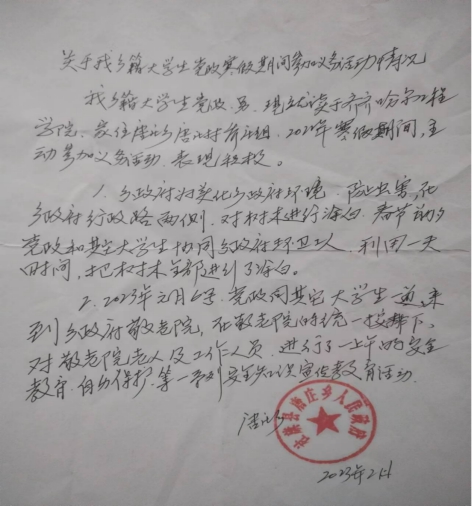 关于我乡籍大学生党政寒假期间参加义务活动情况
我乡籍大学生党政,男,现就读于齐齐哈尔工程
学院,家住唐庄乡唐庄村 组,2023年寒假期间,主
动参加义务活动,表现积极。
1.乡政府为美化乡政府环境,防止虫害,在
乡政府行政路两侧,对树木进行涂白。春节前夕
党政和其它大学生协同乡政府环卫工人,利用一天
时间,把树木全部进行了涂白。
2.2023年元月 号,党政同其它大学生一道来
到乡政府敬老院,在敬老院的统一安排下,
对敬老院老人及工作人员,进行了一上午的安全
教育、自我保护等一系列安全知识宣传教育活动。
唐庄乡
县唐庄乡人民政府
2023年2月